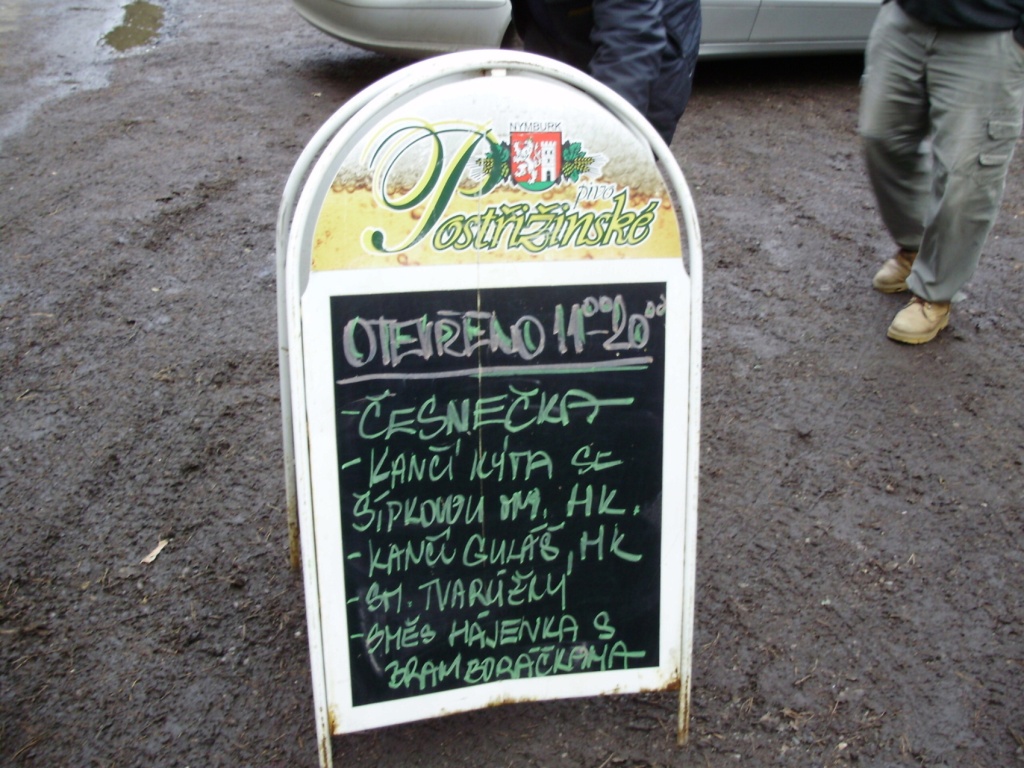 NYMBURK
pivo
Postřižinské
OTEVŘENO 11⁰⁰-20⁰⁰
- ČESNEČKA
- KANČÍ KÝTA SE
ŠÍPKOVOU OM. HK.
- KANČÍ GULÁŠ, HK
- SM. TVARŮŽKY
- SMĚS HÁJENKA S
BRAMBORÁČKAMA